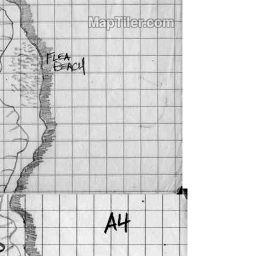 MapTiler.com
FLEA
BEACH
A4